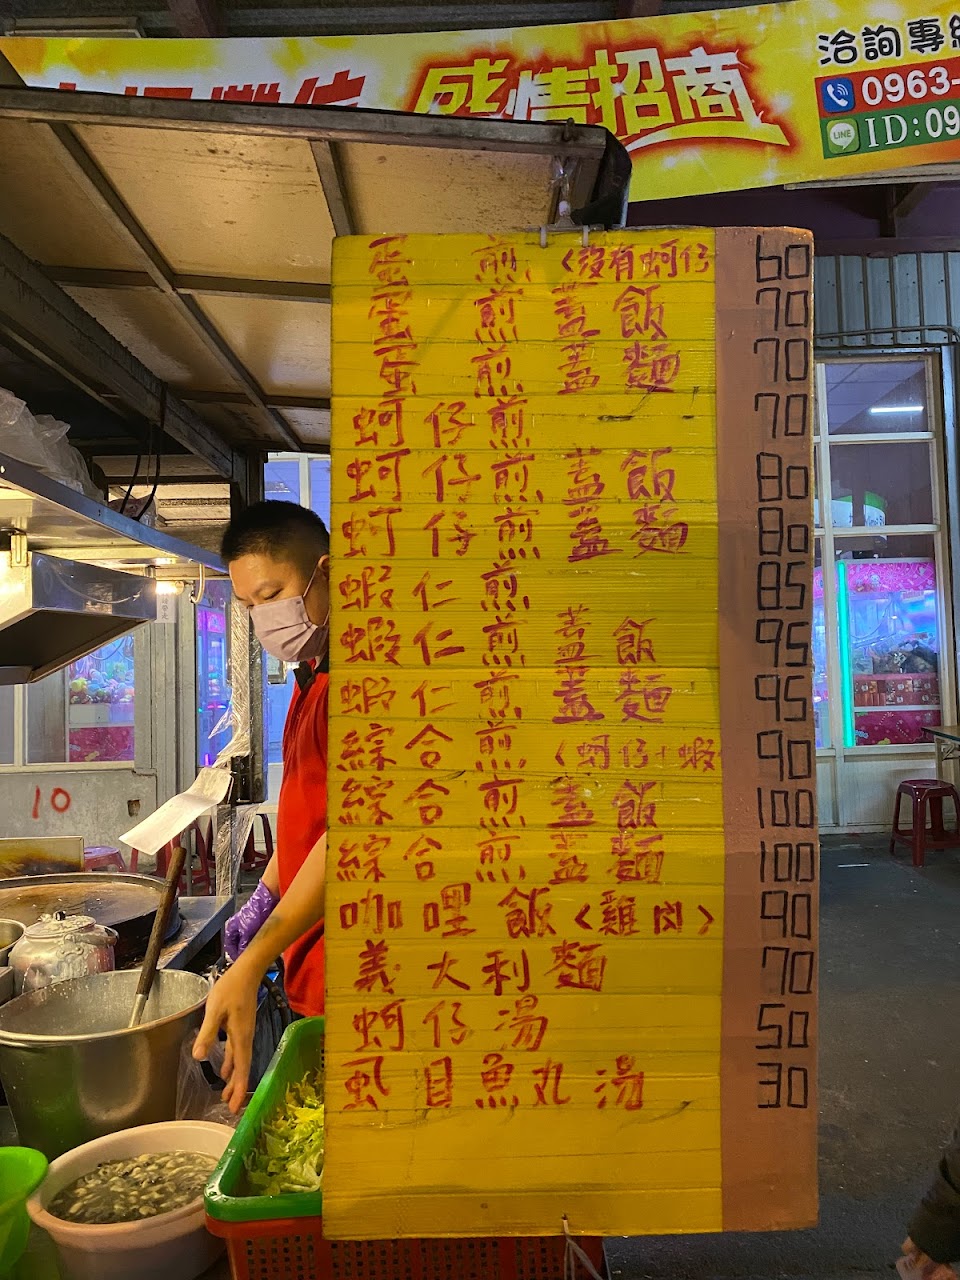 感情招商
洽詢專線
0963-
LINE
ID:09
蛋 煎 (沒有蚵仔 60
蛋 煎 蓋 飯 70
蛋 煎 蓋 麵 70
蚵 仔 煎 70
蚵 仔 煎 蓋 飯 80
蚵 仔 煎 蓋 麵 80
蝦 仁 煎 85
蝦 仁 煎 蓋 飯 95
蝦 仁 煎 蓋 麵 95
綜 合 煎 (蚵仔+蝦 90
綜 合 煎 蓋 飯 100
綜 合 煎 蓋 麵 100
咖 哩 飯 (雞肉) 90
義 大 利 麵 70
蚵 仔 湯 50
虱 目 魚 丸 湯 30
10